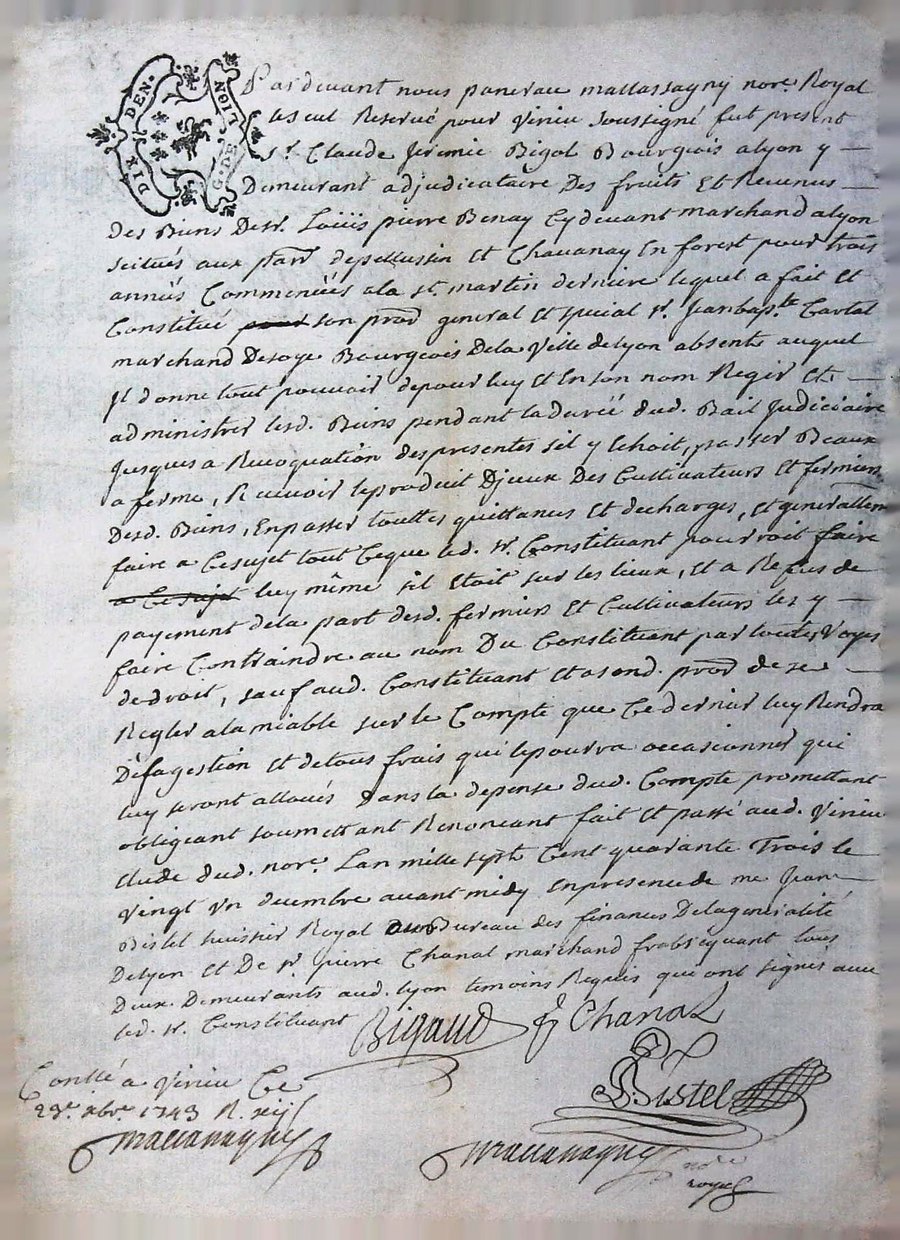 DIX DEN.
G. DE LION
Pardevant nous panerau mattassagny nore. Royal
Reservé pour Virieu soussigné fut present
sr. Claude Jeremie Bigot Bourgeois alyon y
Demeurant adjudicataire Des fruits Et Revenus
des Biens De sr. Loüis pierre Benay Cydevant marchand alyon
scitués aux parr. depellussin Et Chavanay En forest pour trois
années Commencées ala st. martin derniere lequel a fait Et
Constitué pour son procr. general Et special sr. Jeanbapte. Cartal
marchand Desoye Bourgeois Dela Ville delyon absente auquel
Jl donne tout pouvoir depour luy Et En son nom Regir Et
administrer lesd. Biens pendant la durée dud. Bail Judiciaire
Jusques a Revoquation despresentes sil y Echoit, passer Beaux
a ferme, Recevoir leproduit Djceux Des Cultivateurs Et fermiers
Desd. Biens, Enpasser touttes quittances Et decharges, Et generallem
faire a Cesujet tout Ceque led. sr. Constituant pourroit faire
a Cesujet luy même sil Etoit sur les lieux, Et a Refus de
payement dela part desd. fermiers Et Cultivateurs les y
faire Contraindre au nom Du Constituant par toutes Voyes
dedroit, sauf aud. Constituant Et a sond. procr. de se
Regler alamiable sur le Compte que Ce dernier luy Rendra
Desagestion Et detous frais qui lepourra occasionner qui
luy seront alloués Dans la depense dud. Compte promettant
obligeant soumettant Renoncant fait Et passé aud. Virieu
Etude dud. nore. Lan mille sept Cent quarante Trois le
Vingt Vn decembre avant midy Enpresence de me Jean
Bistel huissier Royal au Bureau des finances Delageneralité
Delyon Et De sr. pierre Chanal marchand frabriquant tous
Deux Demeurants aud. lyon temoins Requis qui ont signés avec
led. sr. Constituant Bigaud P Chanal
Conllé a Virieu Ce Bistel
23e. xbre. 1743 R. xijs
mattassagny mattassagny nore
royal